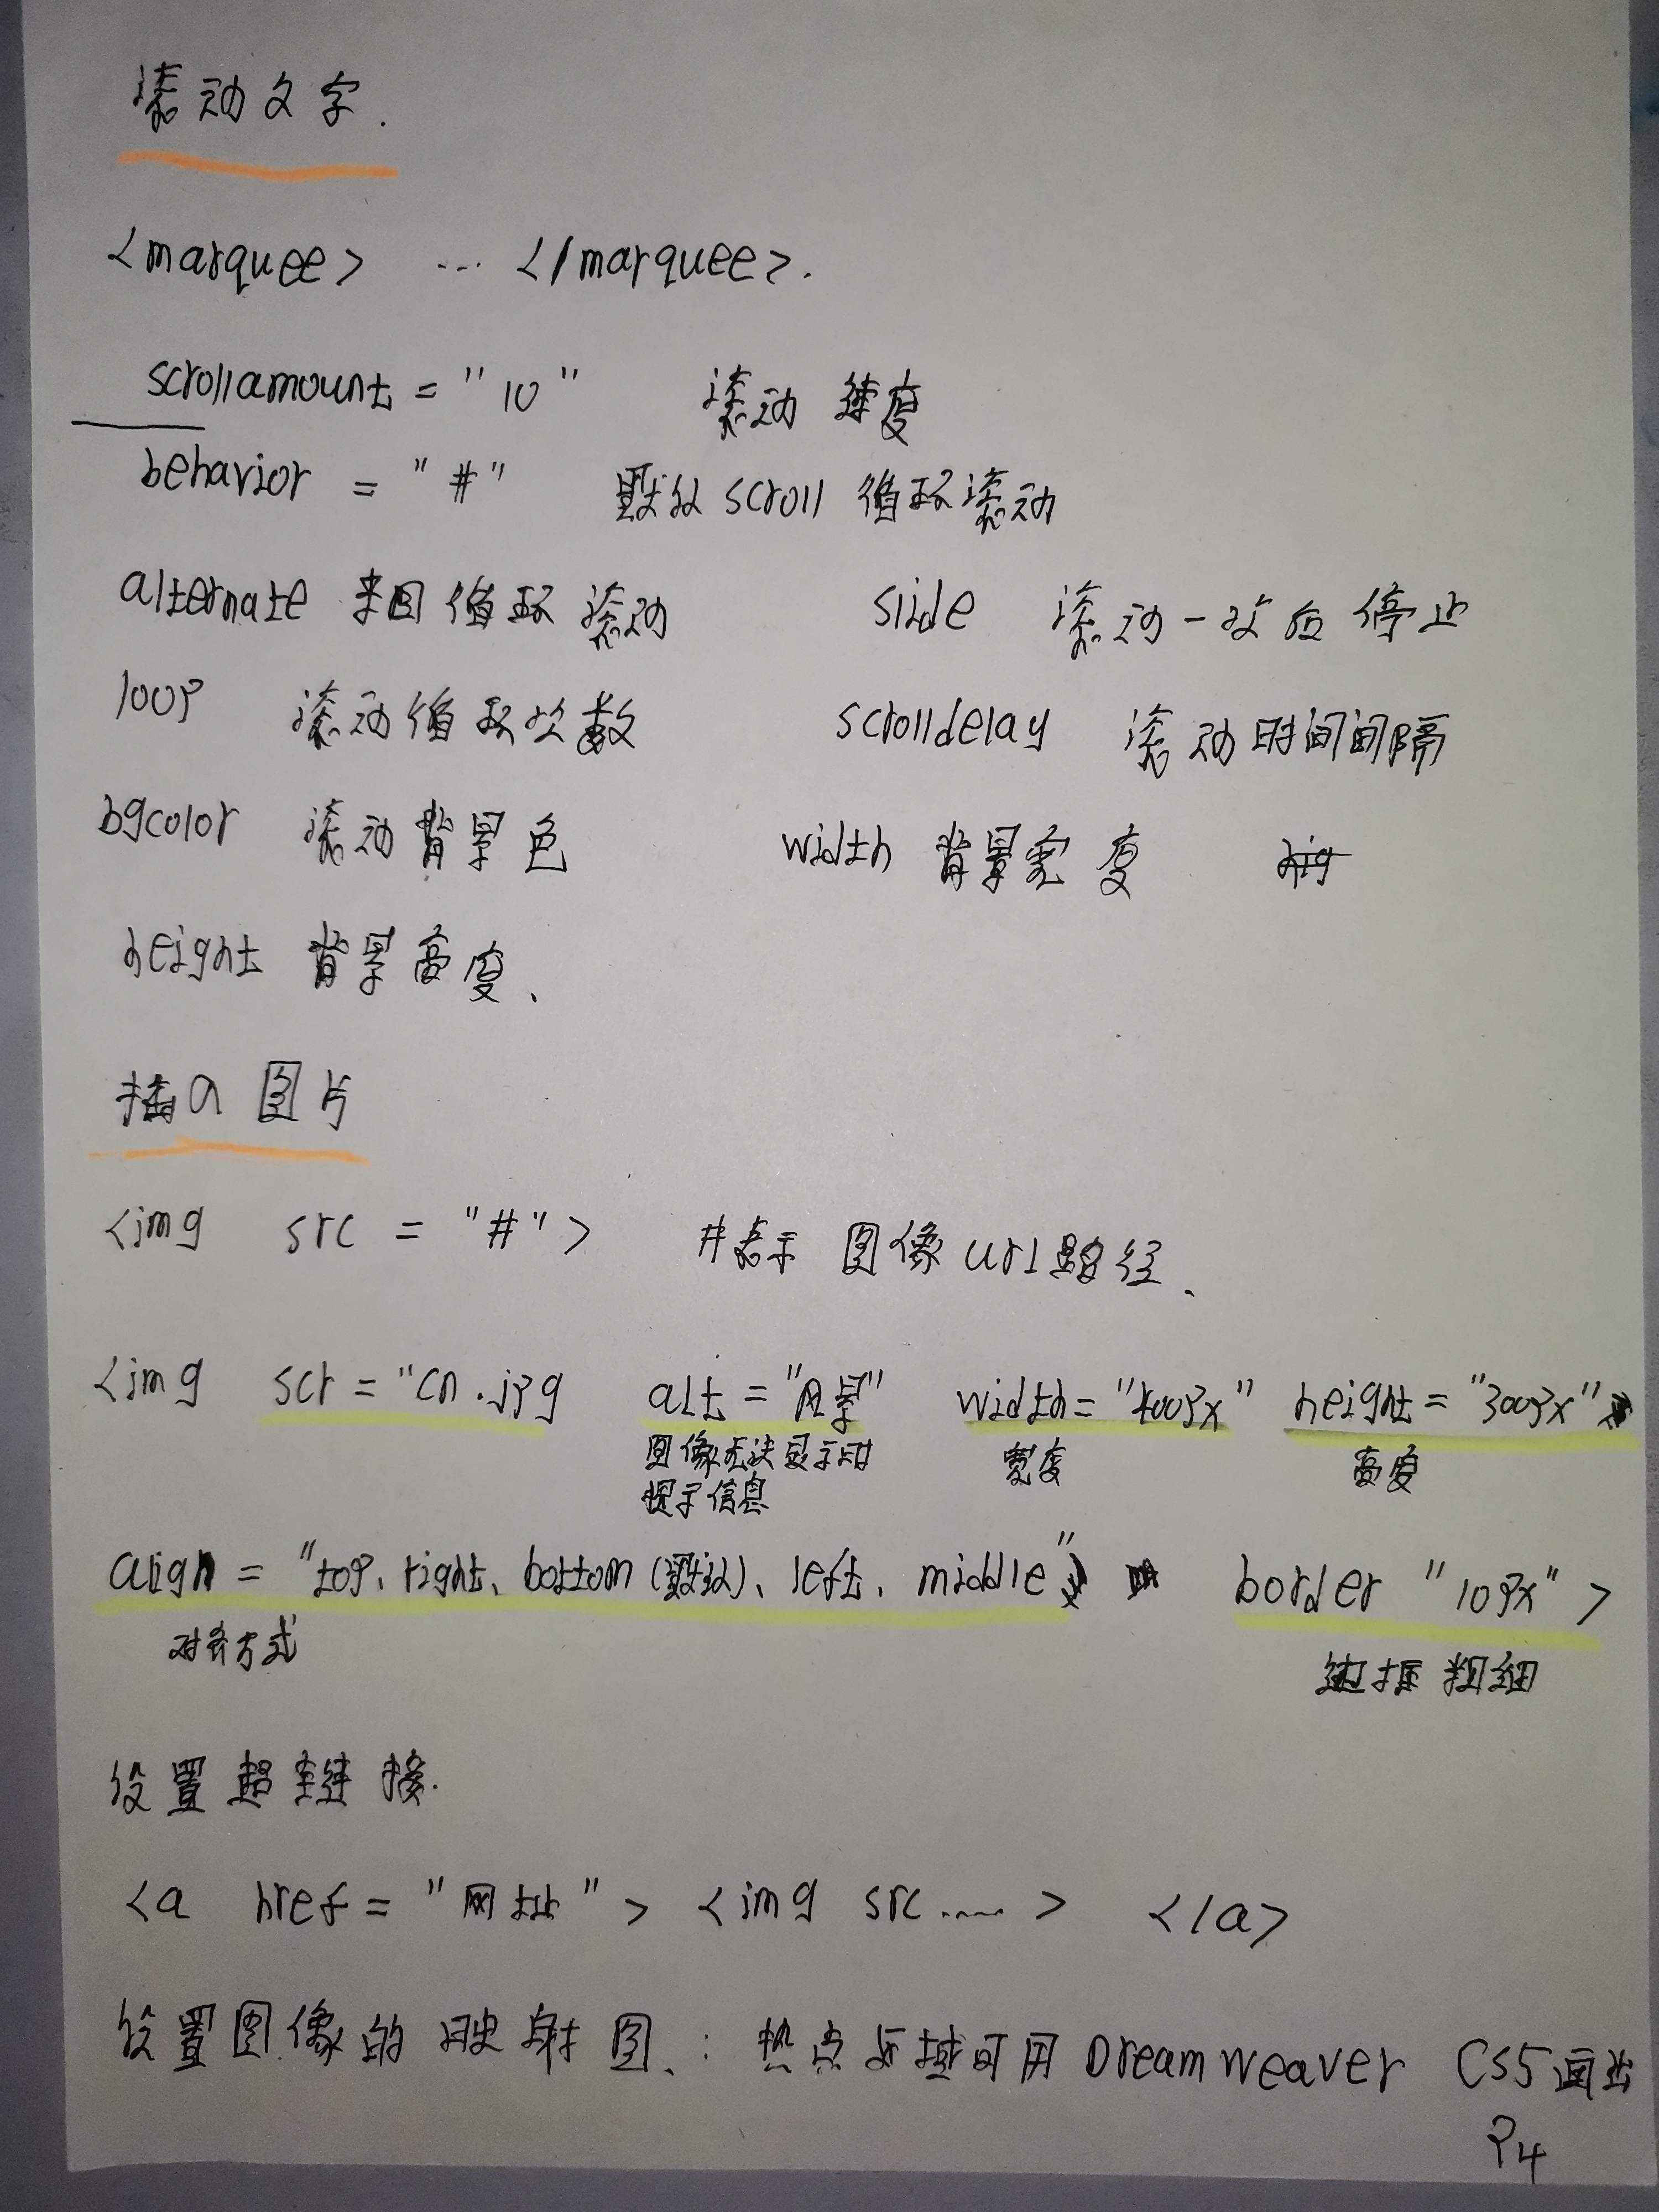 滚动文字.
<marquee> ... </marquee>.
scrollamount = "10" 滚动 速度
behavior = "#" 默认 scroll 循环滚动
alternate 来回循环滚动 slide 滚动一次后停止
loop 滚动循环次数 scrolldelay 滚动时间间隔
bgcolor 滚动背景色 width 背景宽度
height 背景高度、
插入图片
<img src = "#"> #表示 图像 url 路径、
<img scr = "cn.jpg alt = "风景" width = "400px" height = "300px"
图像无法显示时 宽度 高度
提示信息
align = "top、right、bottom (默认)、left、middle" border "10px" >
对齐方式 边框 粗细
设置超链接.
<a href = "网址" > <img src ...... > </a>
设置图像的映射图、: 热点区域可用 Dreamweaver CS5 画出
P4